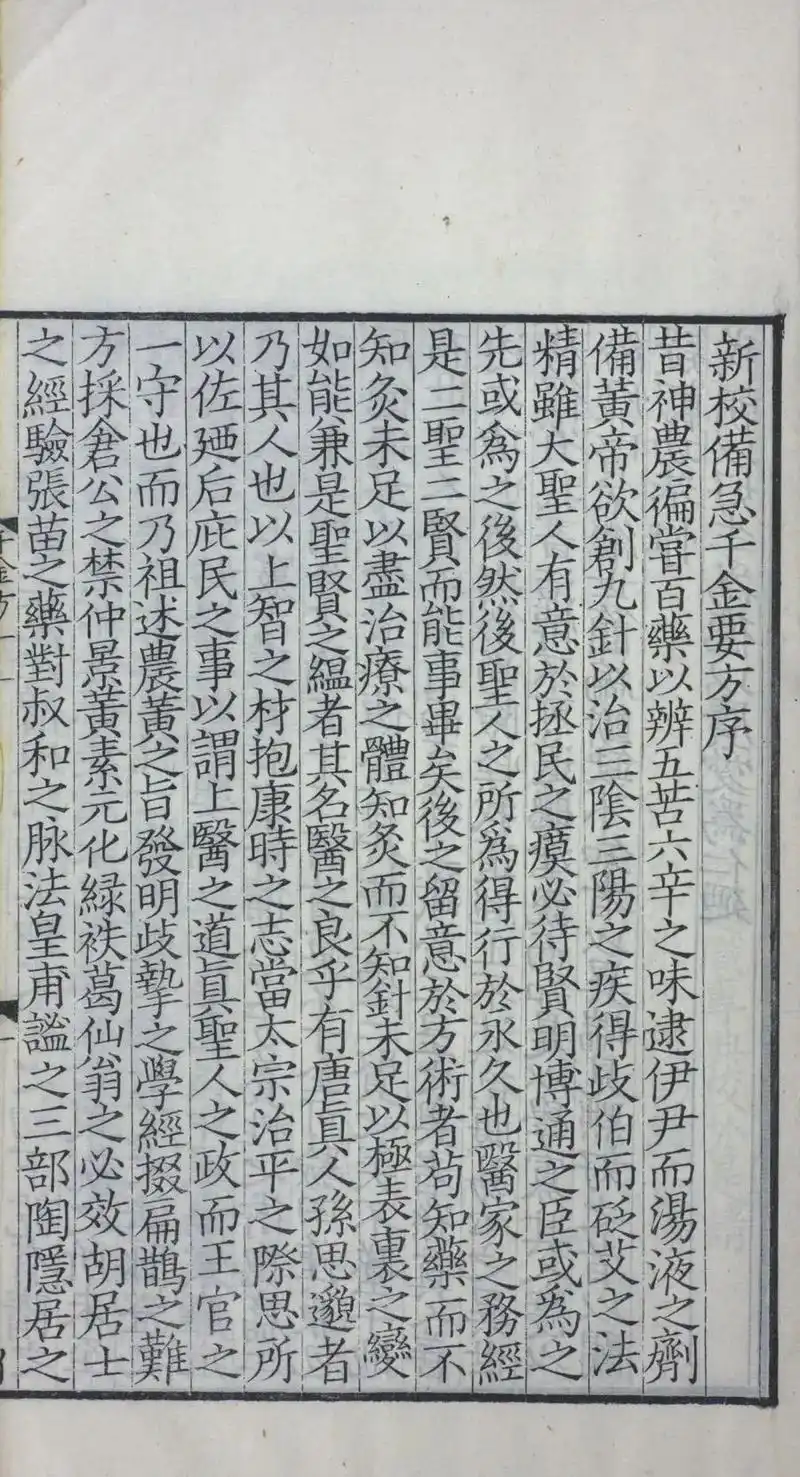 新校備急千金要方序
昔神農徧嘗百藥以辨五苦六辛之味逮伊尹而湯液之劑
備黃帝欲創九針以治三陰三陽之疾得歧伯而砭艾之法
精雖大聖人有意於拯民之瘼必待賢明博通之臣或爲之
先或爲之後然後聖人之所爲得行於永久也醫家之務經
是二聖二賢而能事畢矣後之留意於方術者苟知藥而不
知灸未足以盡治療之體知灸而不知針未足以極表裏之變
如能兼是聖賢之縕者其名醫之良乎有唐眞人孫思邈者
乃其人也以上智之材抱康時之志當太宗治平之際思所
以佐廼后庇民之事以謂上醫之道眞聖人之政而王官之
一守也而乃祖述農黃之旨發明歧摯之學經掇扁鵲之難
方採倉公之禁仲景黃素元化緑袟葛仙翁之必效胡居士
之經驗張苗之藥對叔和之脉法皇甫謐之三部陶隱居之
千金方一